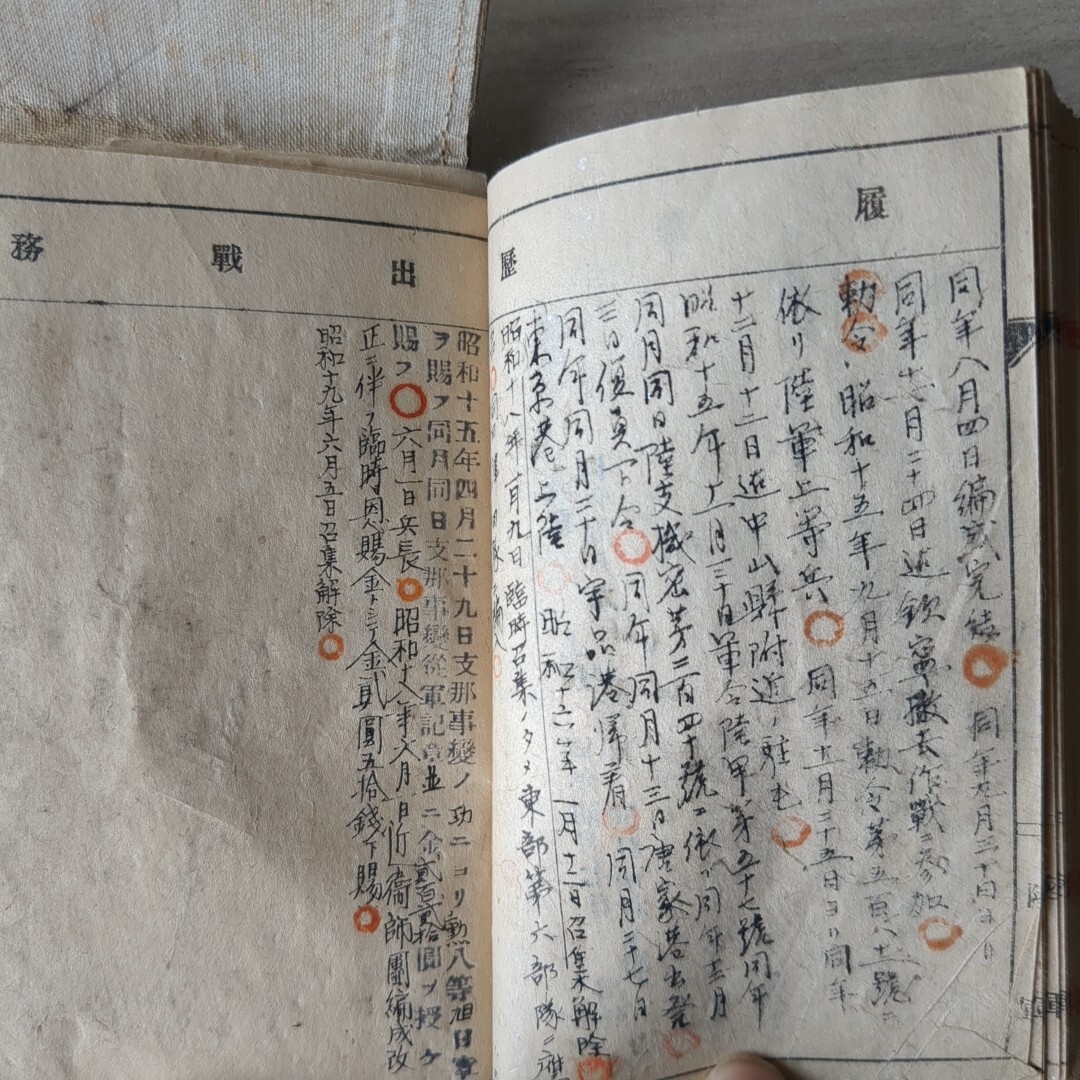 履
同年八月四日編成完結 同年九月三十日ヨリ
同年十一月二十四日迄欽寧撤去作戰ニ参加
勅令、昭和十五年九月十五日勅令第五百八十二號ニ
依リ陸軍上等兵 同年十一月二十五日ヨリ同年
十二月十二日迄中山縣附近ノ駐屯
昭和十五年十一月三十日軍令陸甲第五十七號同年
同月同日陸支機密第二百四十號ニ依リ同年十二月
三日復員下令 同年同月十三日唐家港出発
同年同月二十日宇品港帰着 同月二十七日
東京港上陸 昭和十六年一月十二日召集解除
昭和十八年一月九日臨時召集ノタメ東部第六部隊ニ應
歴
出戰務
昭和十五年四月二十九日支那事變ノ功ニヨリ勲八等旭日章
ヲ賜フ同月同日支那事變從軍記章並ニ金貳百貳拾圓ヲ授ケ
賜フ 六月一日兵長 昭和十八年六月一日近衞師團編成改
正ニ伴フ臨時恩賜金トシテ金貳圓五拾錢下賜
昭和十九年六月五日召集解除